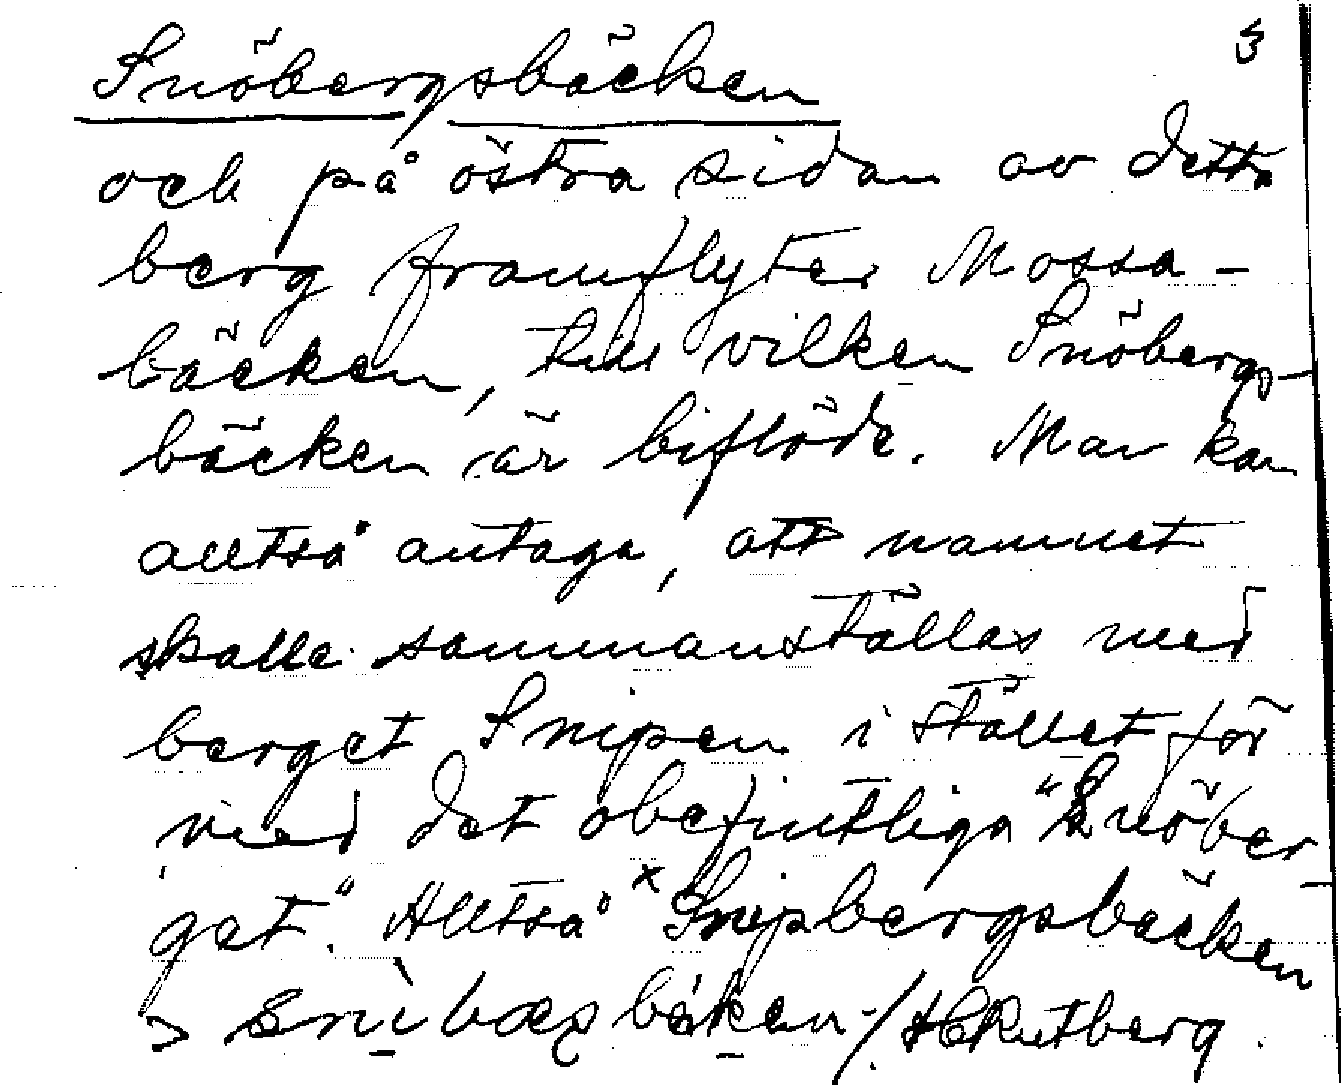 3
Snöbergsbäcken
och på östra sidan av detta
berg framflyter Mossa-
bäcken, till vilken Snöbergs-
bäcken är biflöde. Man kan
alltså antaga, att namnet
skulle sammanställas med
berget Snipen i stället för
med det obefintliga "Snöber-
get". Alltså x Snipbergsbäcken
> snìbæṣbéken / H Rutberg.